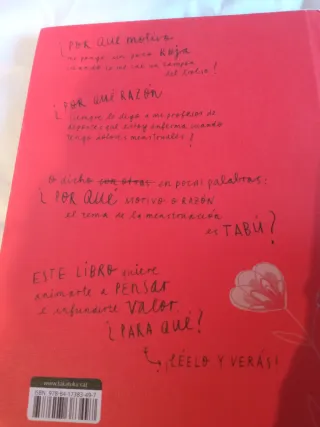 ¿POR QUÉ MOTIVO
me pongo tan pero ROJA
cuando se me cae un tampón
del bolso?
¿POR QUÉ RAZÓN
siempre le digo a mi profesor de
deportes que estoy enferma cuando
tengo dolores menstruales?
O dicho con otras en pocas palabras:
¿POR QUÉ MOTIVO O RAZÓN
el tema de la menstruación
es TABÚ?
ESTE LIBRO quiere
animarte a PENSAR
e infundirte VALOR.
¿PARA QUÉ?
¡LÉELO Y VERÁS!
www.takatuka.cat
ISBN: 978-84-17383-49-7